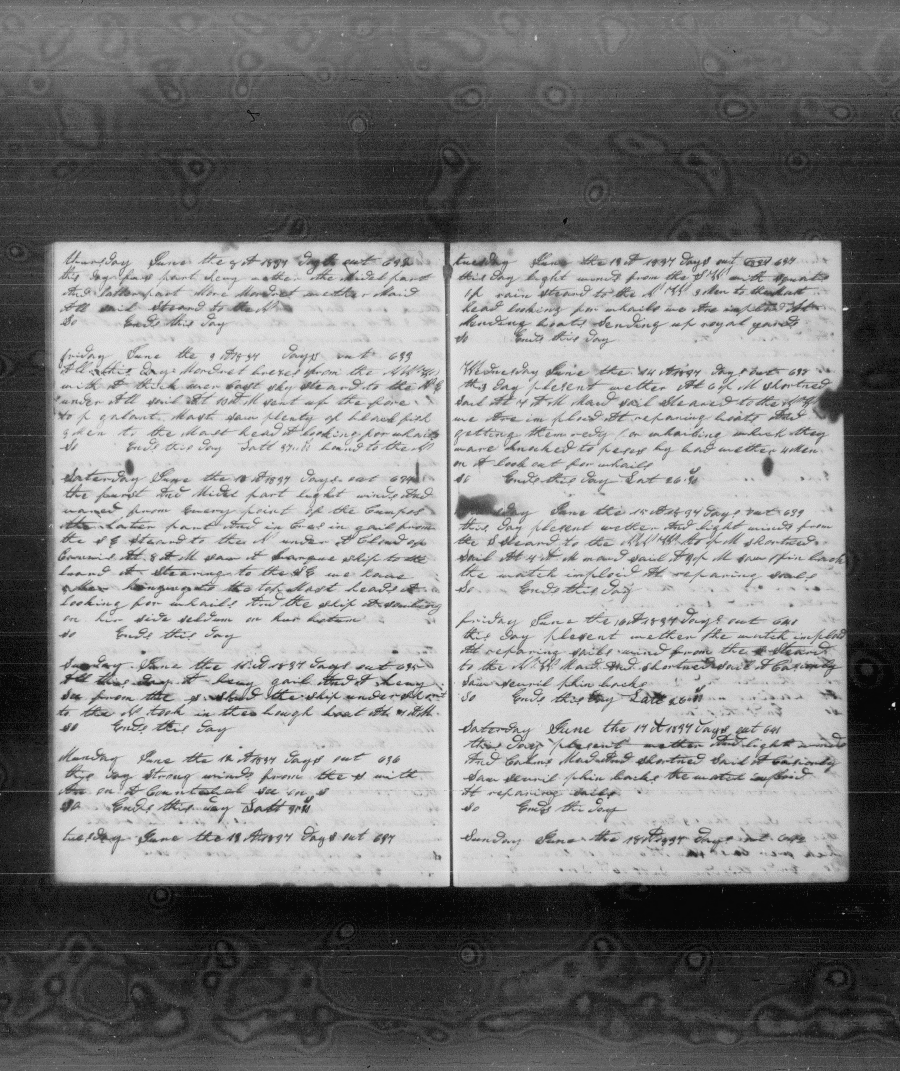 thursday June the 8 A 1837 Days out 632
this Day furs part heny wether the midel part
And latter part More Mondret wether Maid
All sail Steard to the N
So Ends this Day
friday June the 9 A 1837 Days out 633
All this Day Mondret brezes from the
with A thick over Cast sky Steard to the N E
under All sail At 10 A M sent up the fore
to p galant Mast saw plenty of black fish
3 Men to the Mast head A looking for whails
So Ends this Day Latt bound to the N
Saturday June the 10 A 1837 Days out 634
the furst And Midel part light winds And
vared from Every point of the Compas
the later part And in Cres in gail from
the S E Steard to the N under A Cloud of
Canvis At 8 A M saw A barque ship to the
A Stearing to the S E we have
to the top Mast heads A
looking for whails And the ship A
on hir side seldum on hur botum
So Ends this Day
Sunday June the 11 A 1837 Days out 635
All this Day A heny gail And A heny
Sea from the S the ship under Short
to the N took in the bough boat At 4 A M
So Ends this Day
Munday June the 12 A 1837 Days out 636
this Day Strong winds from the S with
on A sea on
So Ends this Day Latt
tuesday June the 13 A 1837 Days out 637
tuesday June the 13 A 1837 Days out 637
this Day light winds from the S W with squals
of rain Steard to the N W 3 Men to the Mast
head looking for whails we Are imploid At
Mending boats Sending up royal yards
So Ends this Day
Wednesday June the 14 A 1837 Days out 638
this Day plesent wether At 6 P M shortned
Sail At 4 A M Maid sail Steared to the N W
we Are imploid At repairing boats And
getting them redy for whailing which they
ware knocked to peses by bad wether 4 Men
on A look out for whails
So Ends this Day Lat 26
June the 15 A 1837 Days out 639
this Day plesent wether And light winds from
the S Steard to the N W At 6 P M shortned
sail At 4 A M maid sail At 3 P M saw A fin back
the watch imploid At reparing sails
So Ends this Day
friday June the 16 A 1837 Days out 640
this Day plesent wether the watch imploid
At reparing sails wind from the Steard
to the N W Maid And shortned sail A Casionly
saw senril phin backs
So Ends this Day Latt 26
Saturday June the 17 A 1837 Days out 641
this Day plesent wether And light winds
And Calms Mad And shortned Sail A Casionly
saw senril phin backs the watch imploid
At reparing sails
So Ends this Day
Sunday June the 18 A 1837 Days out 642